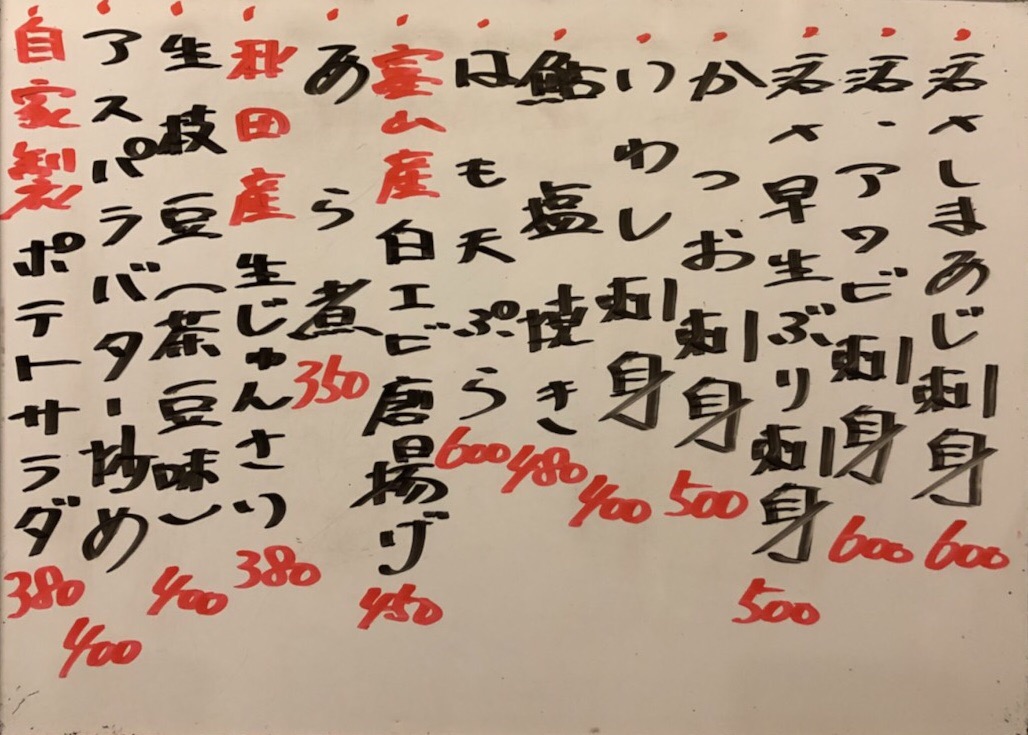 活〆しまあじ刺身 600
活・アワビ刺身 600
活〆早生ぶり刺身 500
かつお刺身 500
いわし刺身 400
鮎塩焼き 480
はも天ぷら 600
富山産白エビ唐揚げ 450
あら煮 350
秋田産生じゅんさい 380
生枝豆(茶豆味) 400
アスパラバター炒め 400
自家製ポテトサラダ 380